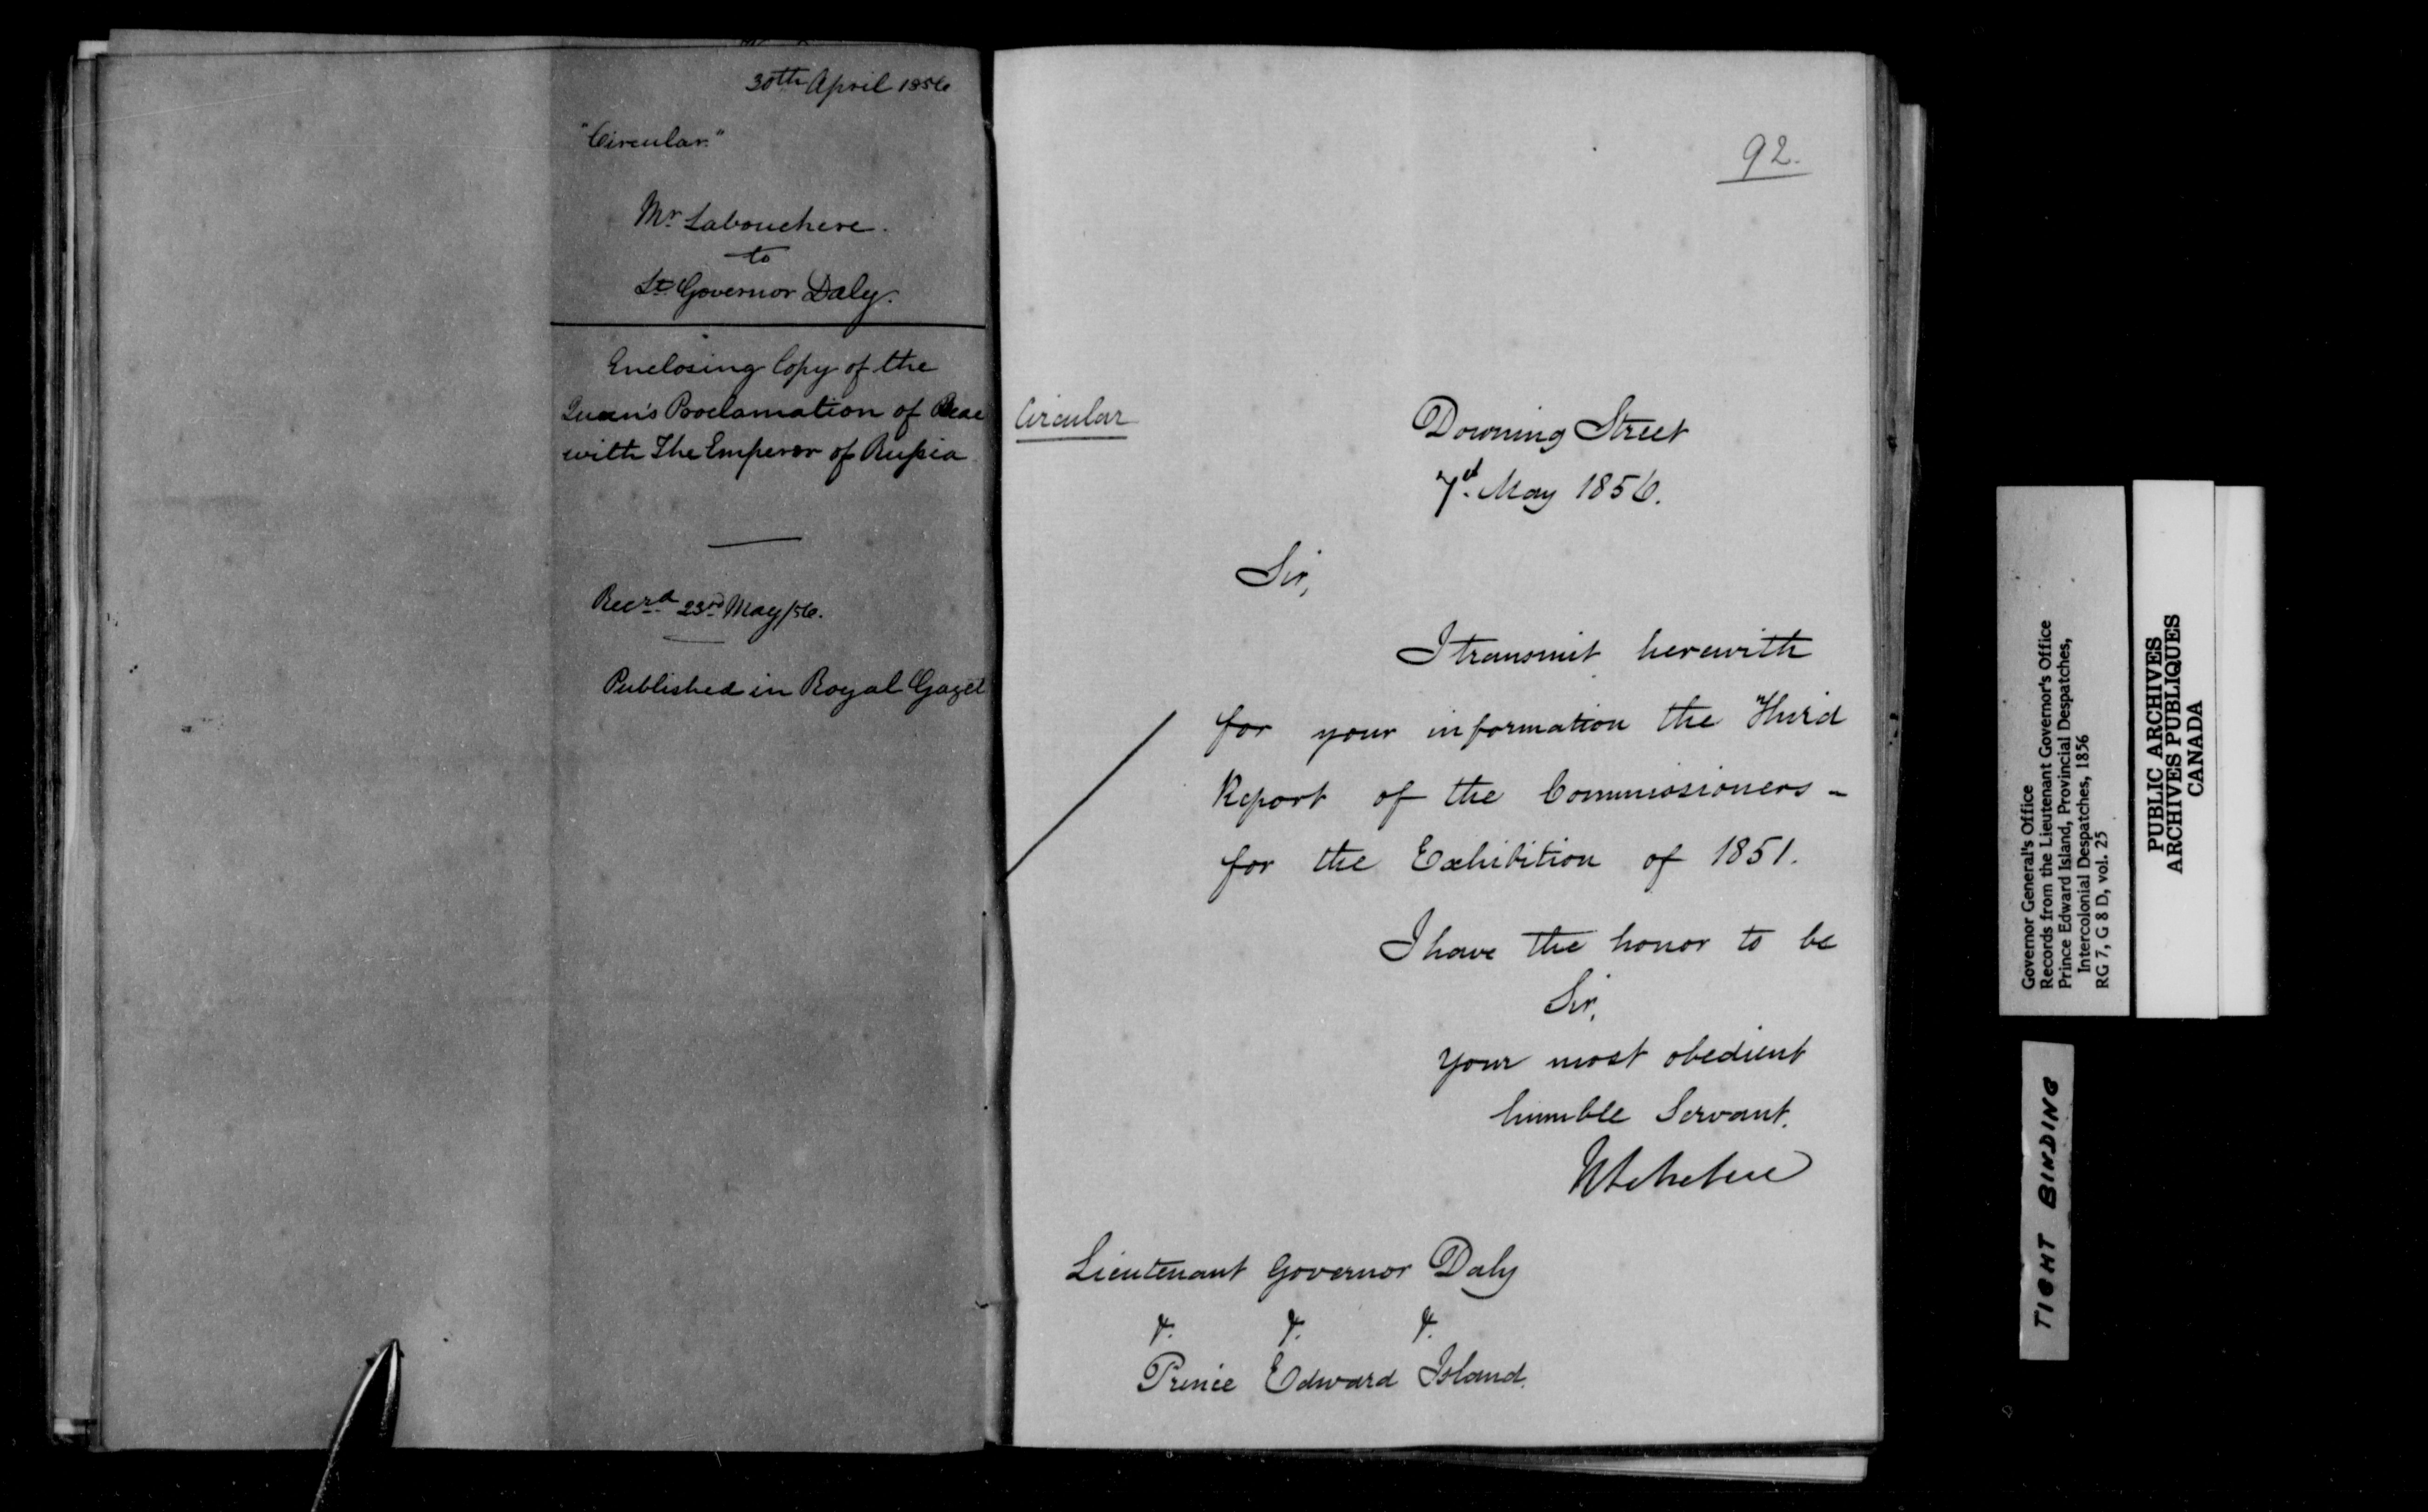 30th April 1856
"Circular."
Mr. Labouchere.
to
Lt. Governor Daly.
Enclosing Copy of the
Queen's Proclamation of Peac
with The Emperor of Russia
Recd. 23rd May/56.
Published in Royal Gazet
92.
Circular
Downing Street
7d. May 1856.
Sir,
I transmit herewith
for your information the Third
Report of the Commissioners -
for the Exhibition of 1851.
I have the honor to be
Sir,
Your most obedient
humble Servant.
Lieutenant Governor Daly
&. &. &.
Prince Edward Island.
Governor General's Office
Records from the Lieutenant Governor's Office
Prince Edward Island, Provincial Despatches,
Intercolonial Despatches, 1856
RG 7, G 8 D, vol. 25
PUBLIC ARCHIVES
ARCHIVES PUBLIQUES
CANADA
TIGHT BINDING